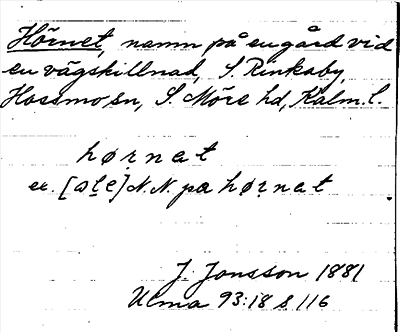 Hörnet, namn på en gård vid
en vägskillnad, S. Rinkaby,
Hossmo sn, S. Möre hd, Kalm. l.
hørnat
ex. [ɔle] N. N. pa hørnat
J. Jonsson 1881
Ulma 93:18 s 116